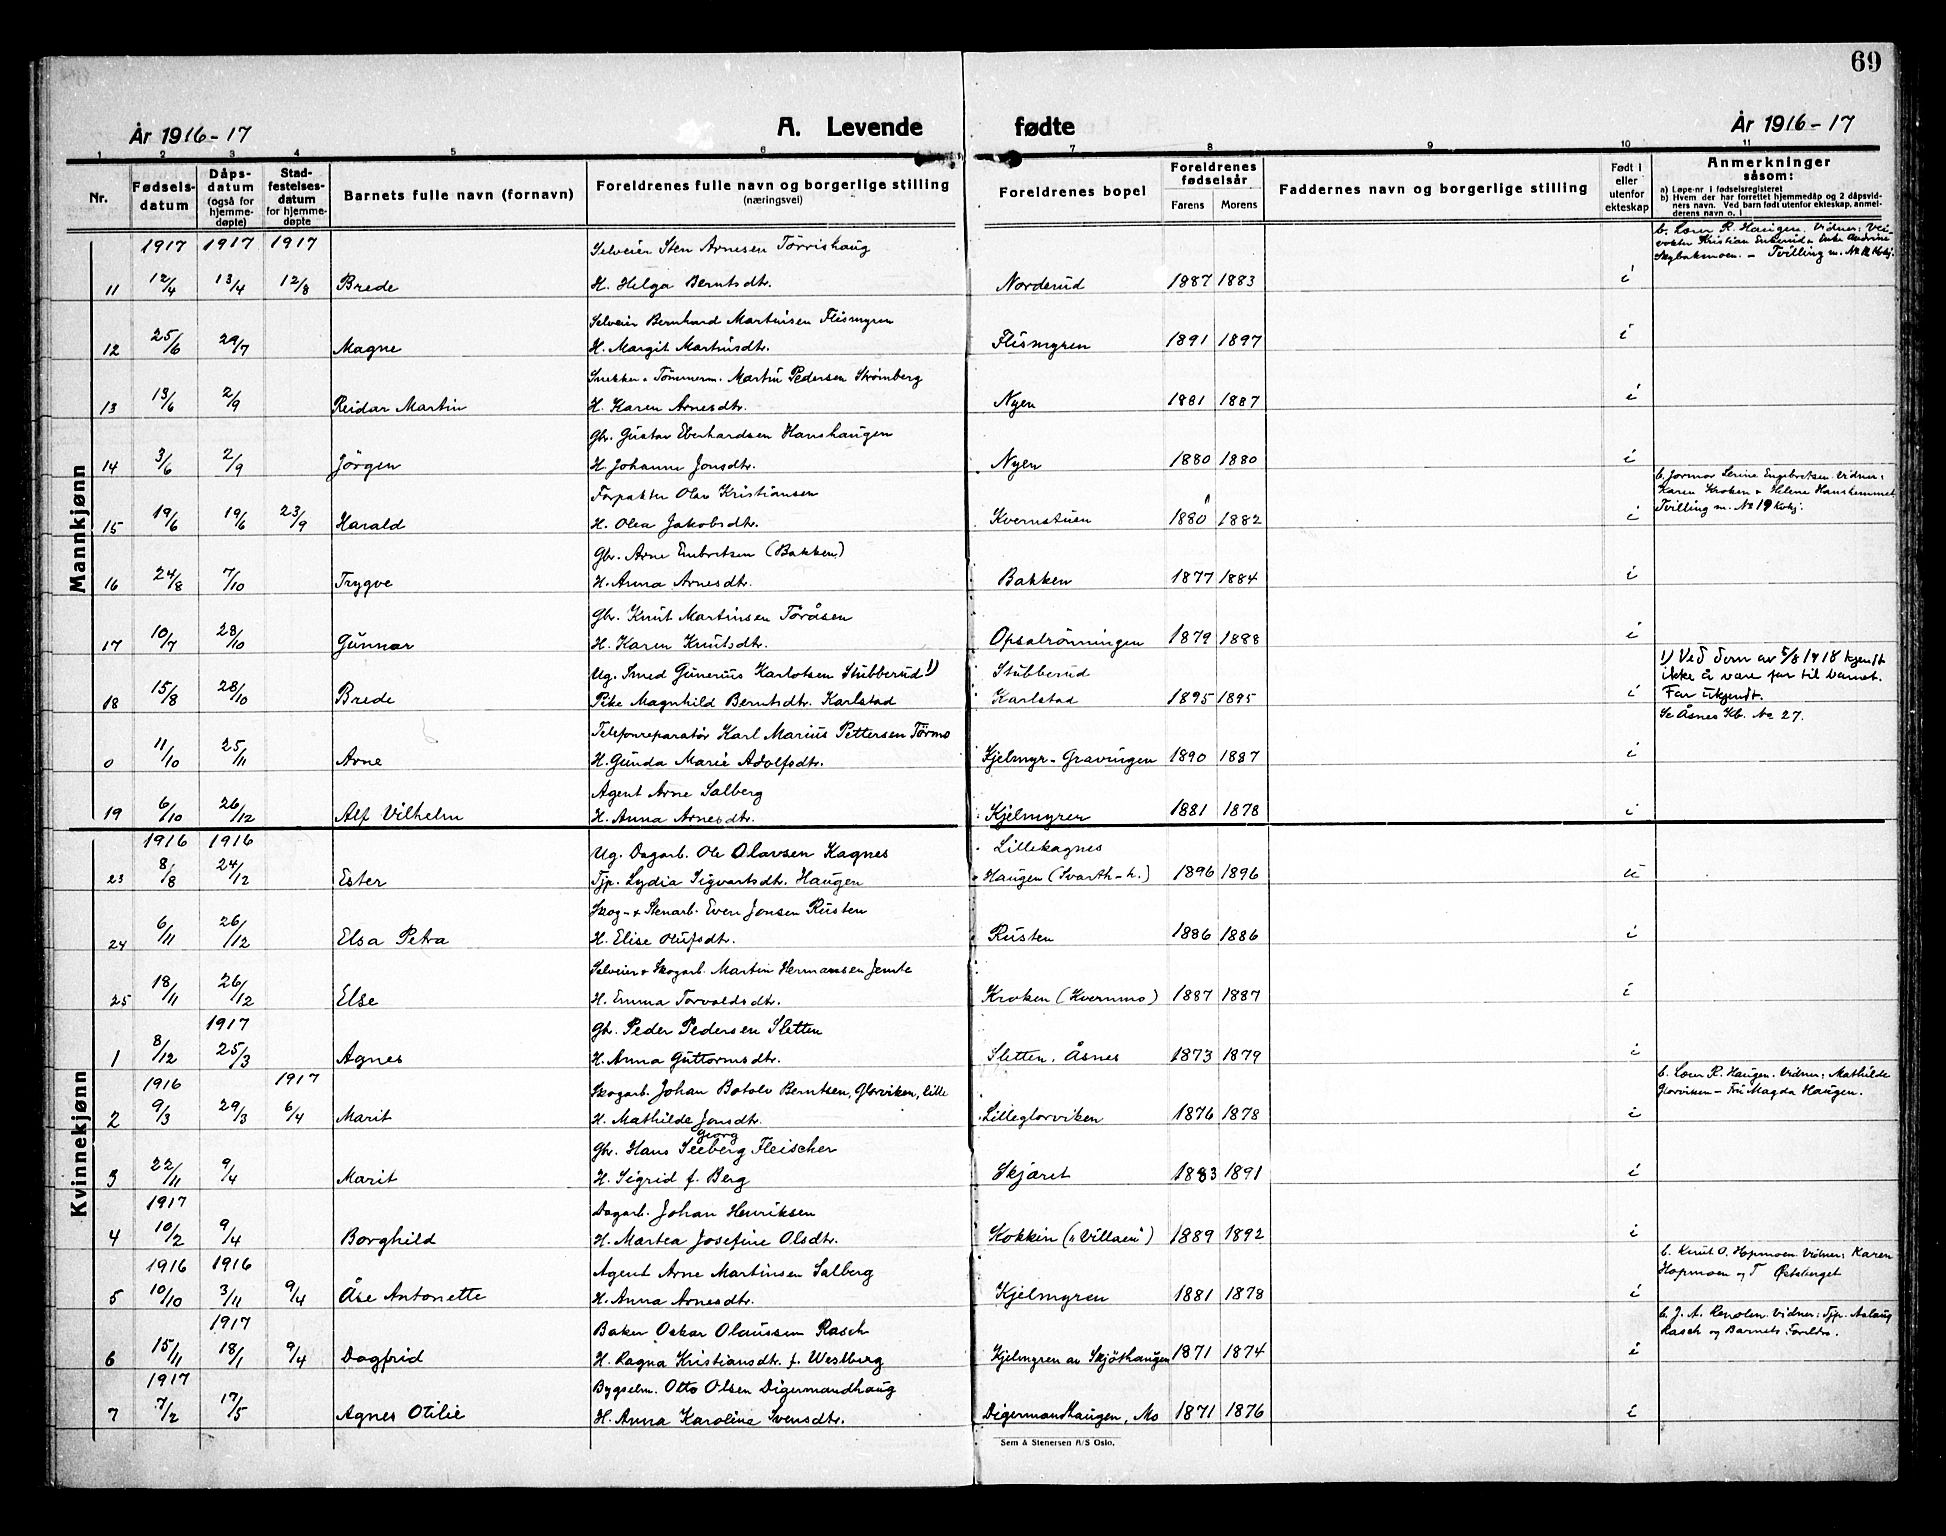 69
År 1916-17
A. Levende fødte
År 1916-17
1 2 3 4 5 6 7 8 9 10 11
Nr.
Fødsels-
datum
Dåps-
datum
(også for
hjemme-
døpte)
Stad-
festelses-
datum
for hjemme-
døpte
Barnets fulle navn (fornavn)
Foreldrenes fulle navn og borgerlige stilling
(næringsvei)
Foreldrenes bopel
Foreldrenes
fødselsår
Farens Morens
Faddernes navn og borgerlige stilling
Født i
eller
utenfor
ekteskap
Anmerkninger
såsom:
a) Løpe-nr i fødselsregisteret
b) Hvem der har forrettet hjemmedåp og 2 dåpsvid-
ners navn. Ved barn født utenfor ekteskap, anmel-
derens navn o. l
Mannkjønn
1917 1917 1917 Selveier Sten Arnesen Törrishaug b. Lærer R. Haugen. Vidner: Vei-
vokter Kristian Enkerud Enke Andrine
Skybakmoen. - Tvilling m. No
11 12/4 13/4 12/8 Brede H. Helga Berntsdtr. Norderud 1887 1883 i
Selveier Bernhard Martinsen Flismyren
12 25/6 29/7 Magne H. Margit Martinsdtr. Flismyren 1891 1897 i
Snekker & Tömmerm. Martin Pedersen Strömberg
13 13/6 2/9 Reidar Martin H. Karen Arnesdtr. Nyen 1881 1887 i
Gbr. Gustav Eberhardsen Hanshaugen
14 3/6 2/9 Jörgen H. Johanne Jonsdtr. Nyen 1880 1880 i
Forpakter Olav Kristiansen b. Jormor Serine Engebretsen. Vidner:
Karen Kroken & Helene Hanshemmet
15 19/6 19/6 23/9 Harald H. Olea Jakobsdtr. Kvernstuen 1880 1882 i Tvilling m. No 19 Kvkj.
Gbr. Arne Embretsen (Bakken)
16 24/8 7/10 Trygve H. Anna Arnesdtr. Bakken 1877 1884 i
Gbr. Knut Martinsen Töråsen
17 10/7 28/10 Gunnar H. Karen Knutsdtr. Opsalrönningen 1879 1888 i
Ug. Smed Gunerius Karlotsen Stubberud 1) Stubberud 1) Ved dom av 5/8 1918 kjendt
ikke å være far til barnet.
18 15/8 28/10 Brede Pike Magnhild Berntsdtr. Karlstad Karlstad 1895 1895 i Far ukjendt.
Telefonreparatör Karl Marius Pettersen Törmo Se Åsnes Kb. No 27.
0 11/10 25/11 Arne H. Gunda Marie Adolfsdtr. Kjelmyr-Gravingen 1890 1887 i
Agent Arne Salberg
19 6/10 26/12 Alf Vilhelm H. Anna Arnesdtr. Kjelmyren 1881 1878 i
Kvinnekjønn
1916 1916 Ug. Dagarb. Ole Olavsen Kagnes Lillekagnes
23 8/8 24/12 Ester Tjp. Lydia Sigvartsdtr. Haugen Haugen (Svarth-h.) 1896 1896 u
Skog- & Stenarb. Even Jonsen Rusten
24 6/11 26/12 Elsa Petra H. Elise Olufsdtr. Rusten 1886 1886 i
Selveier & Skogarb. Martin Hermansen Jemte
25 18/11 26/12 Else H. Emma Torvaldsdtr. Kroken (Kvernmo) 1887 1887 i
1917 Gbr. Peder Pedersen Sletten
1 8/12 25/3 Agnes H. Anna Guttormsdtr. Sletten. Åsnes 1873 1879 i
1916 1917 Skogarb. Johan Botolv Berntsen, Glorviken, lille b. Lærer R. Haugen. Vidner: Mathilde
Glorviken - Fru Magda Haugen.
2 9/3 29/3 6/4 Marit H. Mathilde Jonsdtr. Lilleglorviken 1876 1878 i
Georg
Gbr. Hans Seeberg Fleischer
3 22/11 9/4 Marit H. Sigrid f. Berg Skjæret 1883 1891 i
1917 Dagarb. Johan Henriksen
4 10/2 9/4 Borghild H. Martea Josefine Olsdtr. Kokkin ("Villaen") 1889 1892 i
1916 1916 Agent Arne Martinsen Salberg b. Knut O. Hopmoen. Vidner: Karen
Hopmoen og T
5 10/10 3/11 9/4 Åse Antonette H. Anna Arnesdtr. Kjelmyren 1881 1878 i
1917 Baker Oskar Olaussen Rasch b. J. A. Renolen. Vidner: Tjp. Aslaug
Rasch og Barnets Foreldre.
6 15/11 18/1 9/4 Dagfrid H. Ragna Kristiansdtr. f. Westberg Kjelmyren av Skjöthaugen 1871 1874 i
1917 Bygselm. Otto Olsen Digermandhaug
7 7/2 17/5 Agnes Otilie H. Anna Karoline Svensdtr. Digermandhaugen, Mo 1871 1876 i
Sem & Stenersen A/S Oslo.